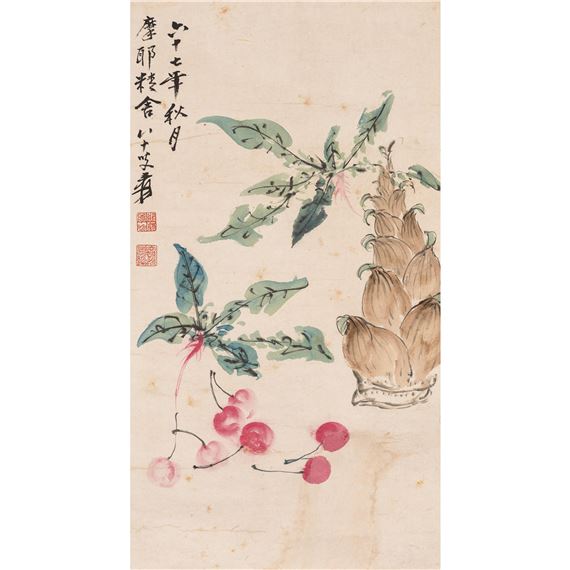 六十七年秋月
摩耶精舍八十叟爰